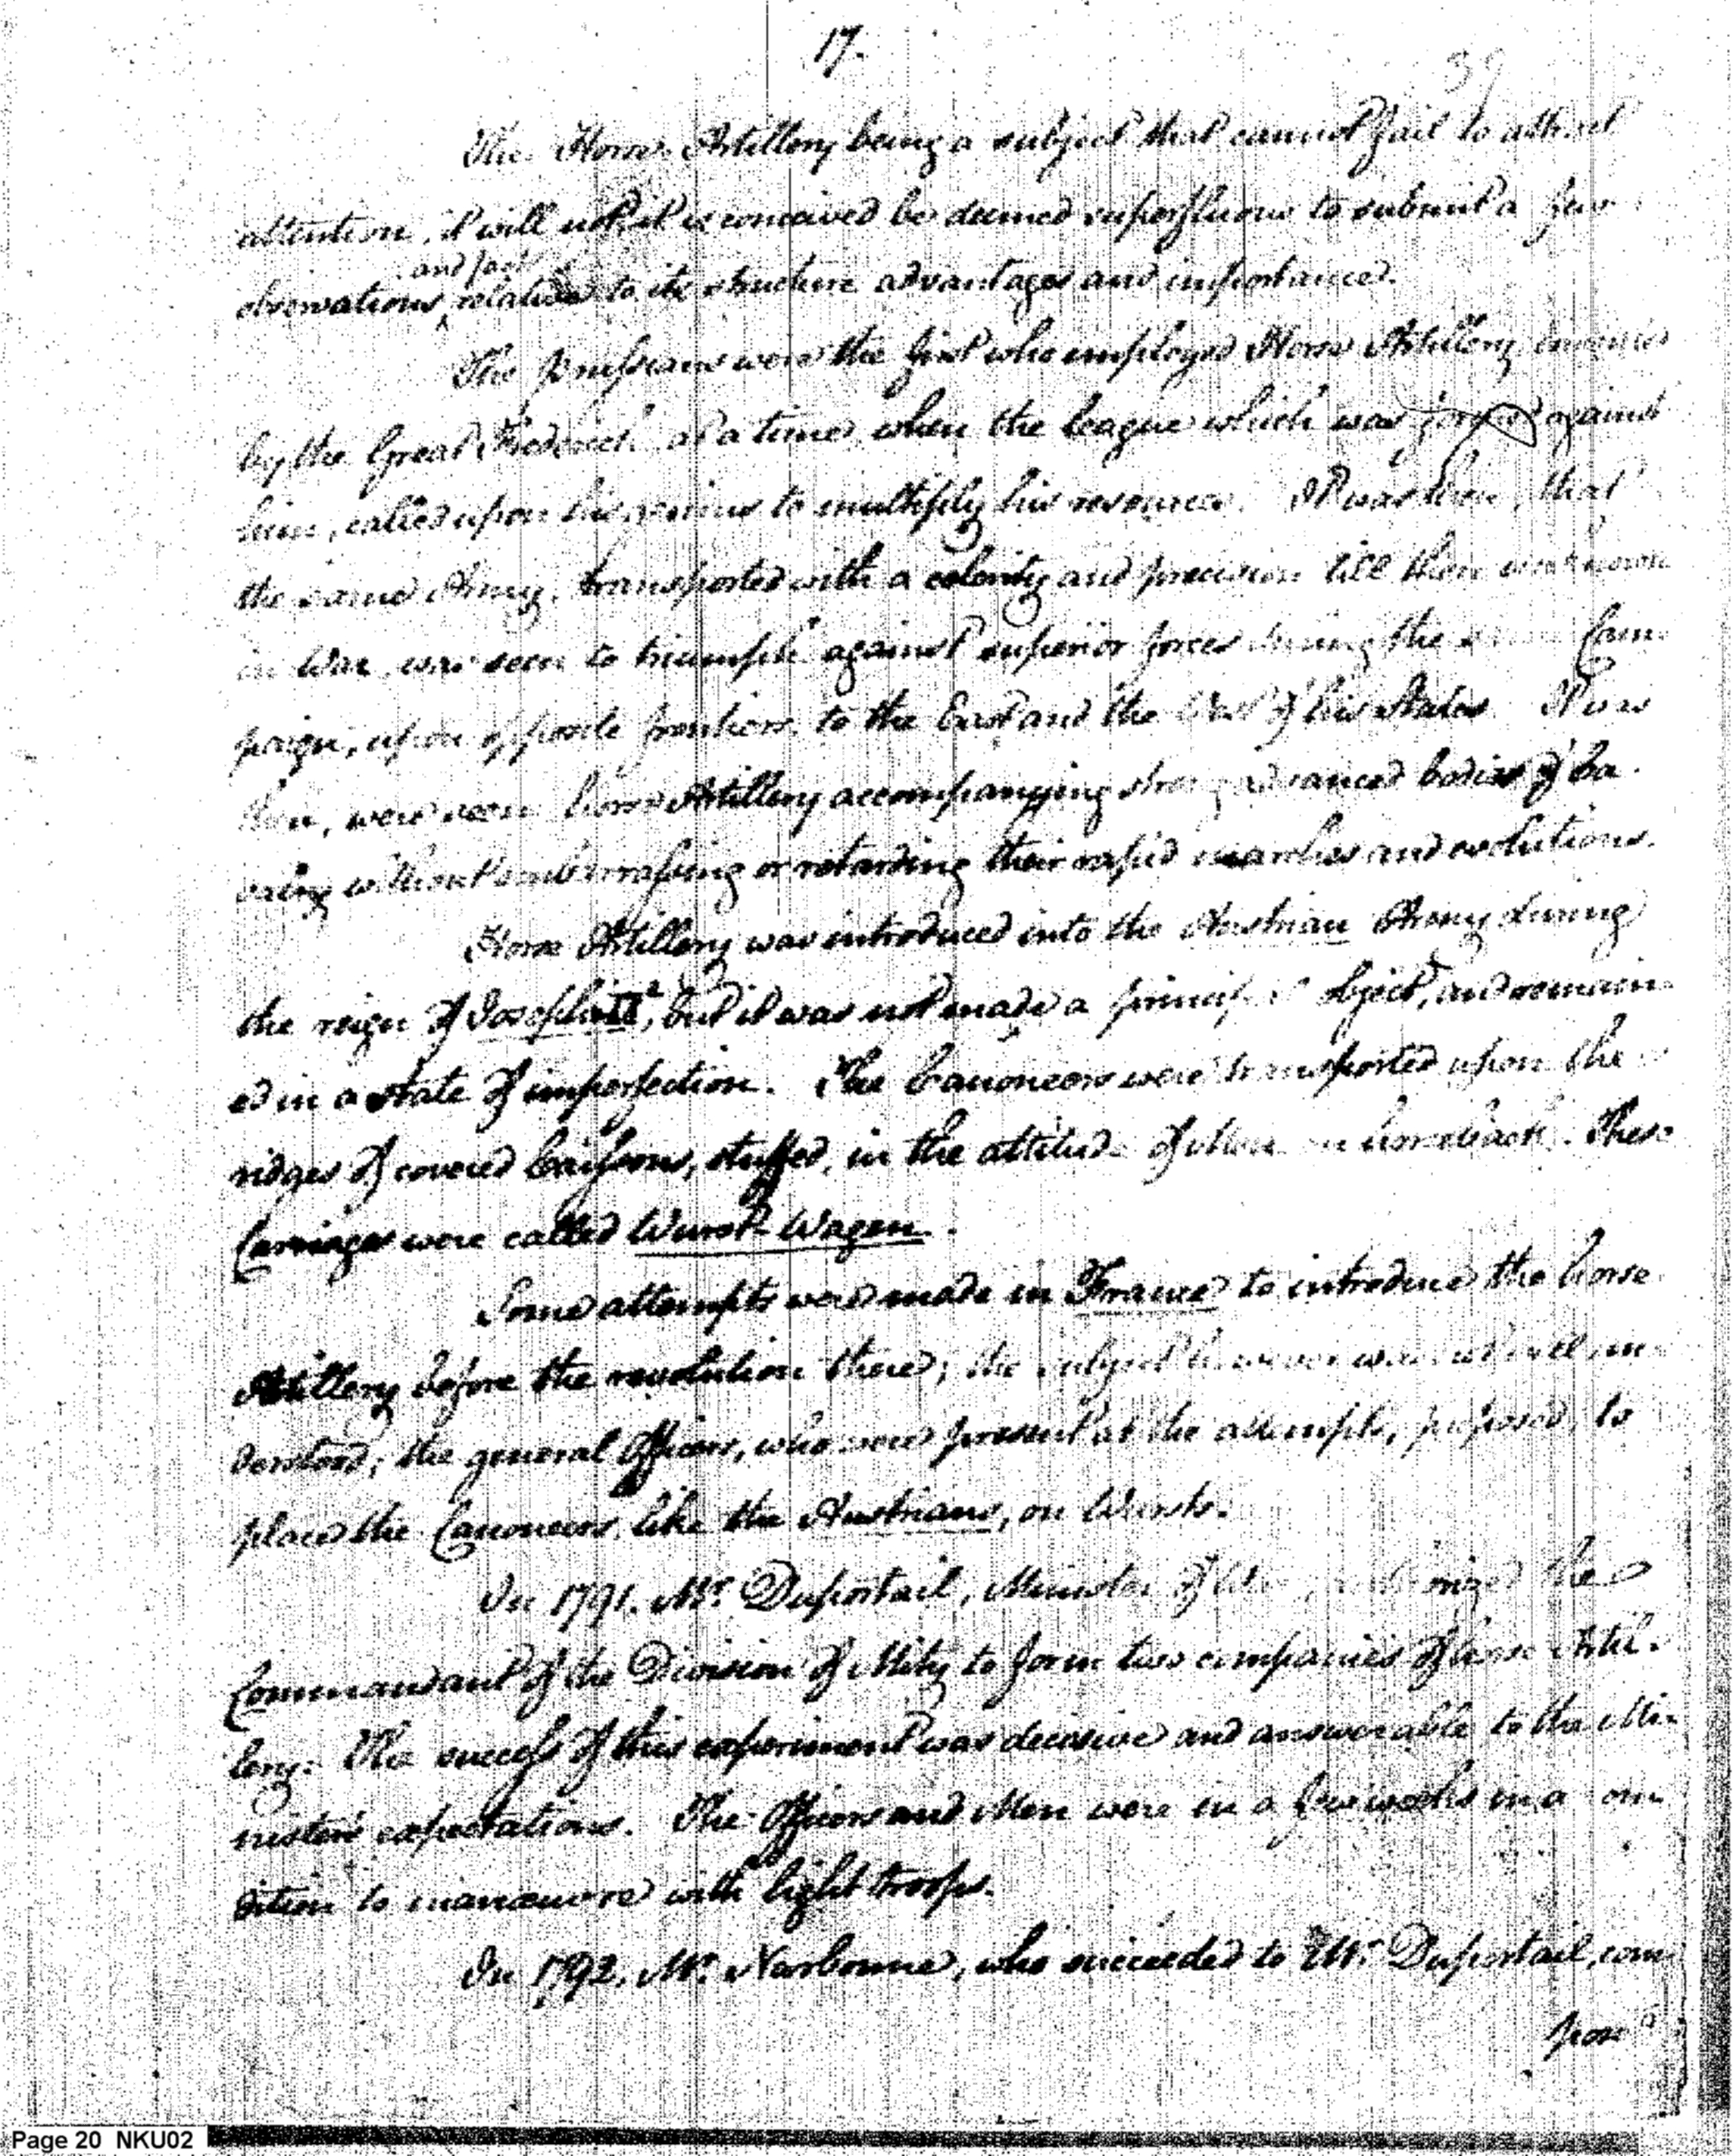 17.
39
The Horse Artillery being a subject that cannot fail to attract
attention, it will not, it is conceived be deemed superfluous to submit a few
and facts
observations relative to its structure advantages and importance.
The Prussians were the first who employed Horse Artillery
by the Great Frederick at a time when the league which was formed against
him, called upon his genius to multiply his resources. It was then, that
the same Army, transported with a celerity and precision till then unknown
in War, was seen to triumph against superior forces during the same Cam-
paign, upon opposite frontiers, to the East and the West of his States. It was
then, were seen horse Artillery accompanying strong advanced bodies of Ca-
valry without embarrassing or retarding their rapid marches and evolutions.
Horse Artillery was introduced into the Austrian Army during
the reign of Joseph II, but it was not made a principal object, and remain-
ed in a state of imperfection. The Canoneers were transported upon the
ridges of covered Caissons, stuffed, in the attitude of those on horseback. These
Carriages were called Wurst-Wagen.
Some attempts were made in France to introduce the horse
Artillery before the revolution there; the subject however was not well un-
derstood; the general Officers, who were present at the attempts, proposed, to
place the Canoneers, like the Austrians, on Wursts.
In 1791. Mr. Duportail, Minister of War, authorized the
Commandant of the Division of Mity to form two companies of horse Artil-
lery. The success of this experiment was decisive and answerable to the Mi-
nister's expectations. The Officers and Men were in a few weeks in a con-
dition to manœuvre with light troops.
In 1792. Mr. Narbonne, who succeeded to Mr. Duportail, com-
pos'd
Page 20 NKU02